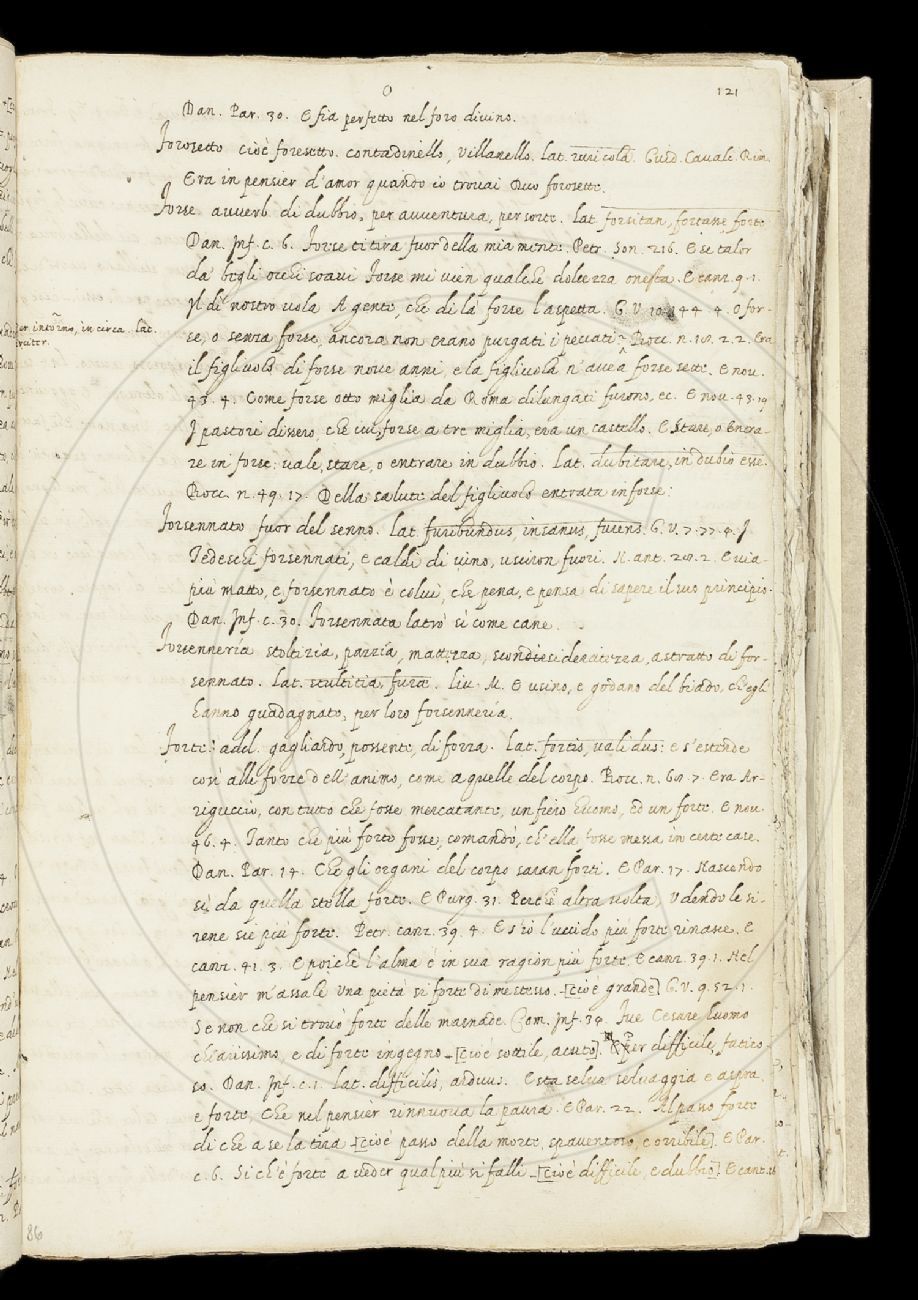 O
121
Dan. Par. 30. E fia perfetto nel foro divino.
Forosetto cioè foresetto. contadinello, villanello. Lat. ruricola. Guid. Cavalc. Rim.
Era in pensier d'amor quando io trovai Duo forosette.
Forse avverb. di dubbio, per avventura, per sorte. Lat. forsitan, fortasse, forte
Dan. Inf. c. 6. Forse ti tira fuor della mia mente. Petr. Son. 216. E se talor
da' begli occhi soavi Forse mi vien qualche dolcezza onesta. E canz. 9. 1.
Il dì nostro vola A gente, che di là forse l'aspetta. G. V. 10. 144. 4. O for-
se, o senza forse, ancora non erano purgati i peccati. Bocc. n. 18. 22. Era
il figlivolo di forse nove anni, e la figlivola n'avea forse sette. E nov.
43. 4. Come forse otto miglia da Roma dilungati furono, ec. E nov. 43. 19
I pastori dissero, che ivi forse a tre miglia, era un castello. E Stare, o Entra-
re in forse: vale, stare, o entrare in dubbio. Lat. dubitare, in dubio esse.
Bocc. n. 49. 17. Della salute del figlivolo entrata in forse:
Forsennato fuor del senno. Lat. furibundus, insanus, furens. G. V. 7. 77. 4. I
Tedeschi forsennati, e caldi di vino, usciron fuori. N. ant. 28. 2. E via
più matto, e forsennato è colui, che pena, e pensa di sapere il suo principio.
Dan. Inf. c. 30. Forsennata latrò sì come cane.
Forsennería stoltizia, pazzía, mattezza, scondesideratezza, astratto di for-
sennato. Lat. stultitia, furor. Liv. M. E usino, e godano del biado, ch'egli
hanno guadagnato, per loro forsennería.
Forte: add. gagliardo, possente, di forza. Lat. fortis, validus: e s'estende
così alle forze dell'animo, come a quelle del corpo. Bocc. n. 68. 7. Era Ar-
riguccio, con tutto che fosse mercatante, un fiero huomo, ed un forte. E nov.
46. 4. Tanto che più forte fosse, comandò, ch'ella fosse messa in certe case.
Dan. Par. 14. Che gli organi del corpo saran forti. E Par. 17. Nascendo
sì da quella stella forte. E Purg. 31. Perchè altra volta, Udendo le si-
rene sie più forte. Petr. canz. 39. 4. E s'io l'uccido più forte rinasce. E
canz. 41. 3. E poichè l'alma è in sua ragion più forte. E canz. 39. 1. Nel
pensier m'assale Una pietà sì forte di me stesso. [cioè grande] G. V. 9. 52. 1.
Se non che si trovò forte delle masnade. Com. Inf. 34. Fue Cesare huomo
chiarissimo, e di forte ingegno [cioè sottile, acuto]. Per difficile, fatico-
so. Dan. Inf. c. 1. Lat. difficilis, arduus. Esta selva selvaggia e aspra,
e forte, Che nel pensier rinnuova la paura. E Par. 22. Al passo forte
di che a se la tira [cioè passo della morte, spaventoso, e orribile]. E Par.
c. 6. Sì ch'è forte a veder qual più si falli [cioè difficile, e dubbio]. E cant.
per intorno, in circa. lat.
circiter.
86